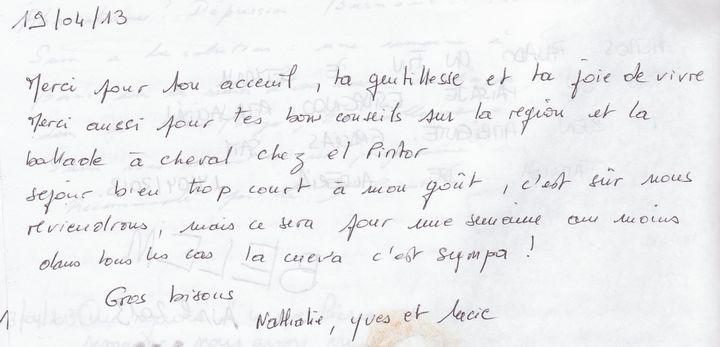 19/04/13
Merci pour ton acceuil, ta gentillesse et ta joie de vivre
Merci aussi pour tes bons conseils sur la région et la
ballade à cheval chez el Pintor
sejour bien trop court à mon goût, c'est sûr nous
reviendrons, mais ce sera pour une semaine au moins
dans tous les cas la cueva c'est sympa !
Gros bisous
Nathalie, yves et lucie